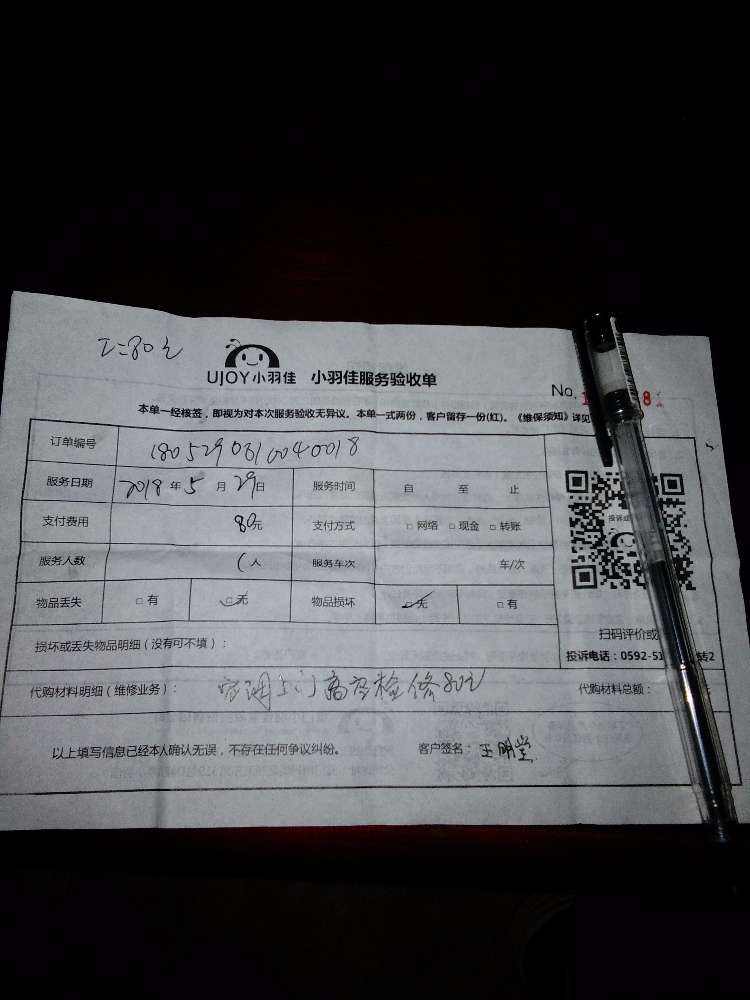 工=80元
UJOY小羽佳 小羽佳服务验收单
No. 1 8
本单一经核签，即视为对本次服务验收无异议。本单一式两份，客户留存一份(红)。《维保须知》详见
订单编号 1805290810040018
服务日期 2018年5月29日 服务时间 自 至 止
支付费用 80元 支付方式 □网络 □现金 □转账
投诉或
服务人数 1人 服务车次 车/次
物品丢失 □有 □无 物品损坏 □无 □有
扫码评价或
损坏或丢失物品明细（没有可不填）：
投诉电话：0592-51 转2
代购材料明细（维修业务）： 空调上门高空检修80元 代购材料总额：
以上填写信息已经本人确认无误，不存在任何争议纠纷。 客户签名：王明堂